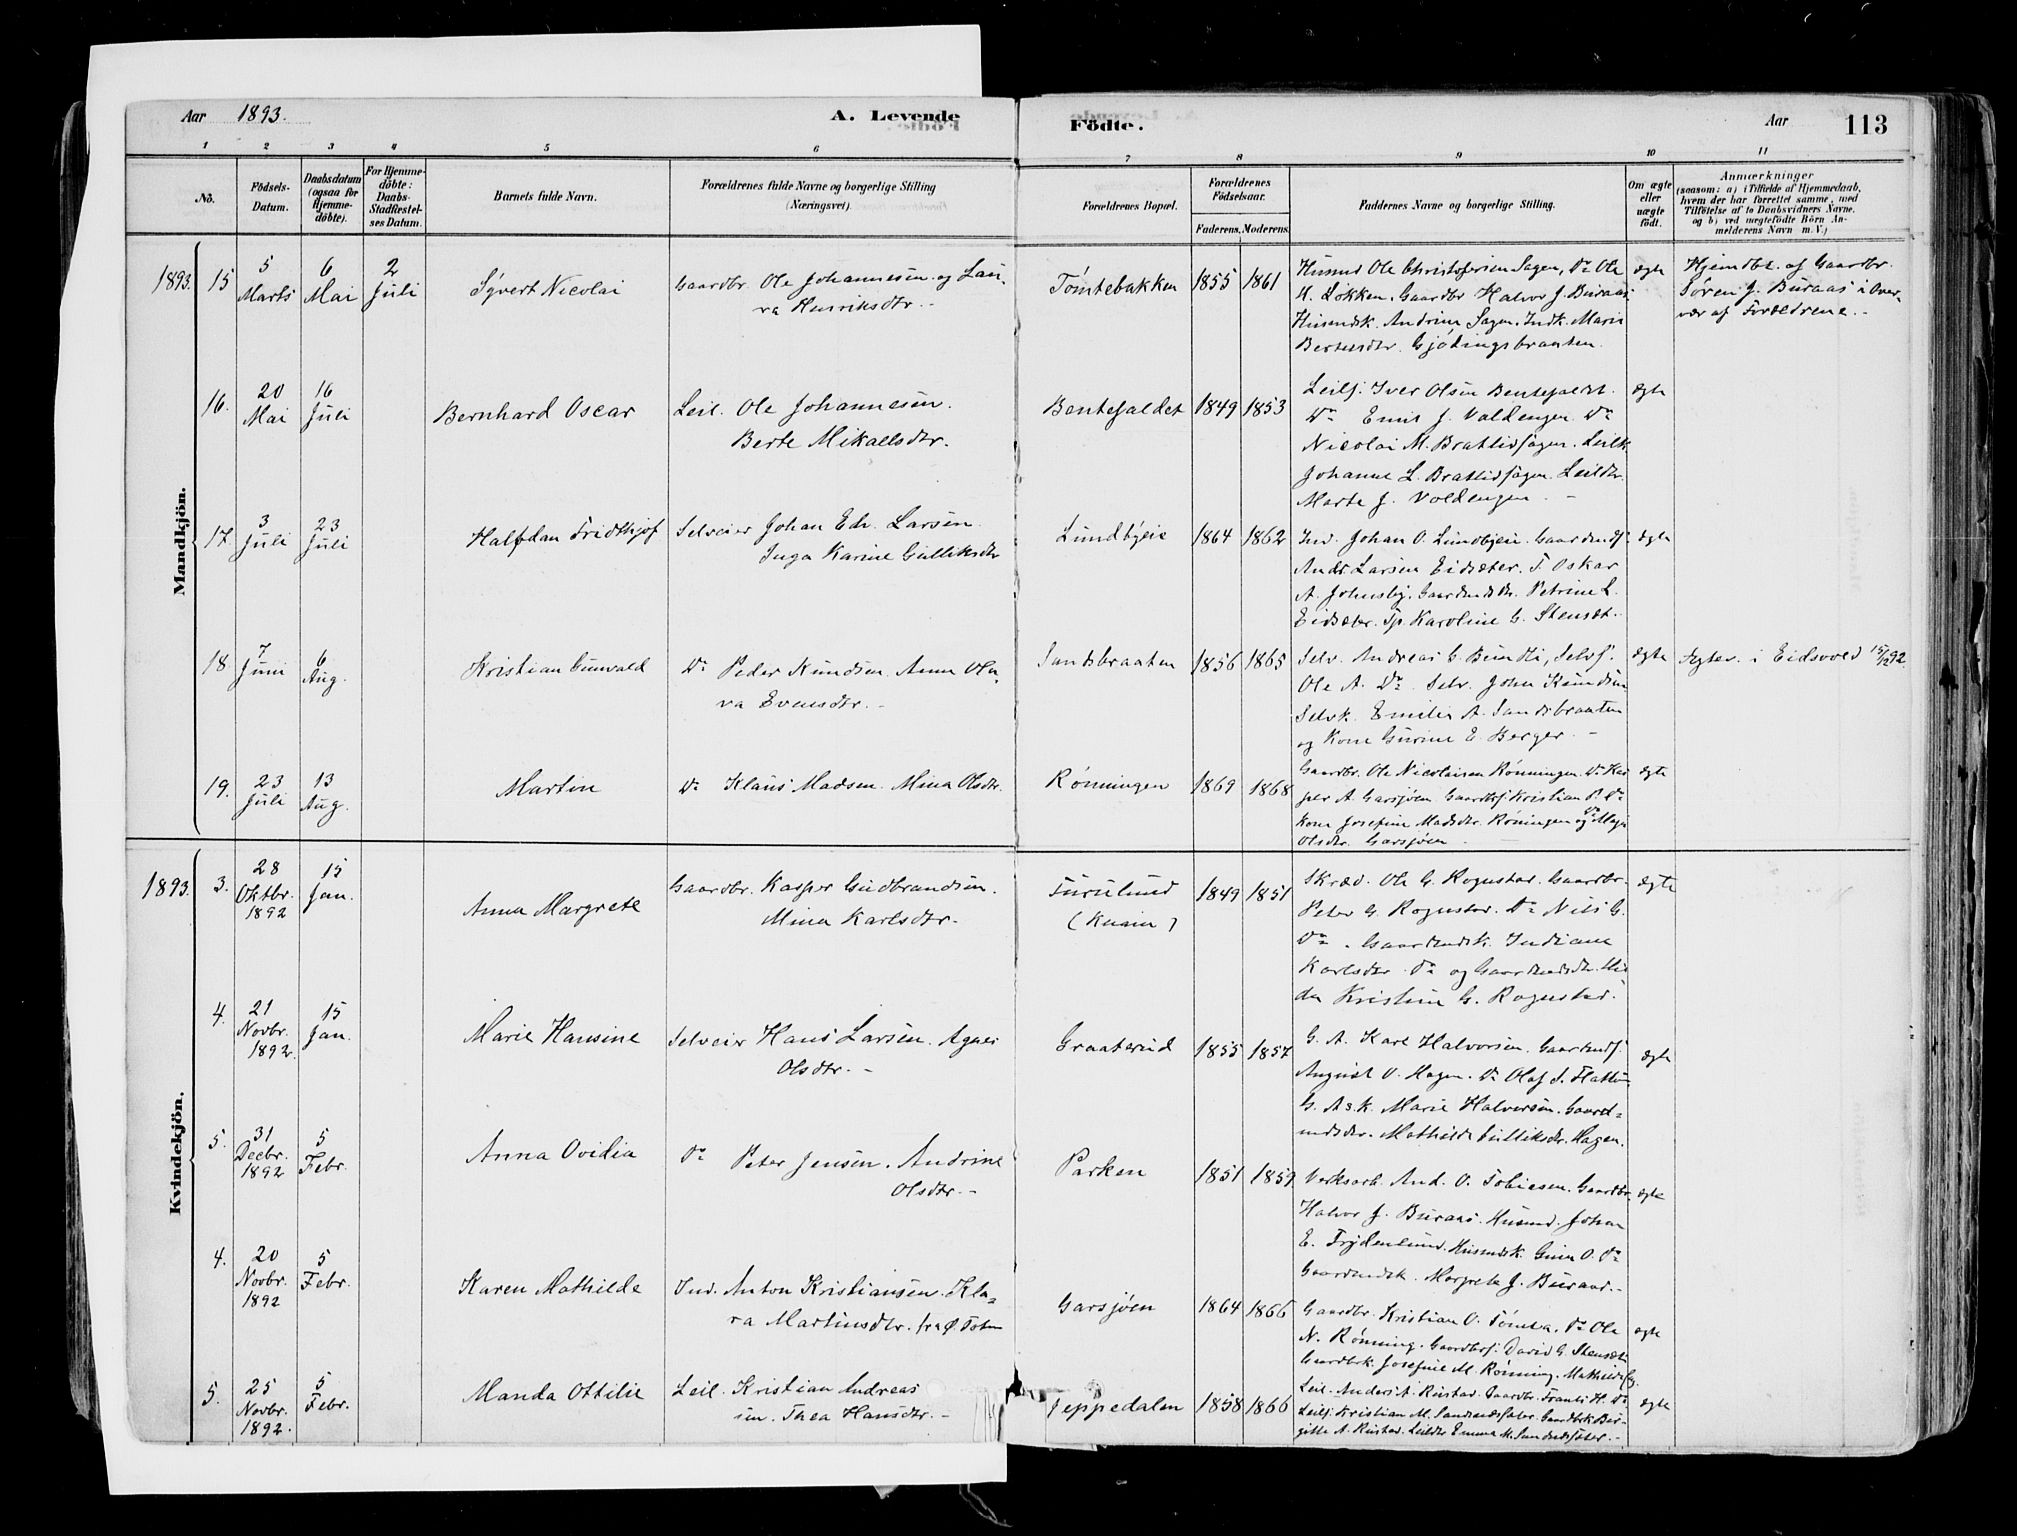 Aar 1893.
A. Levende
Födte.
Aar
113
1
2
3
4
5
6
7
8
9
10
11
No.
Födsels-
Datum.
Daabsdatum
(ogsaa for
Hjemme-
döbte).
For Hjemme-
döbte:
Daabs-
Stadfæstel-
ses Datum.
Barnets fulde Navn.
Forældrenes fulde Navne og borgerlige Stilling
(Næringsvei).
Forældrenes Bopæl.
Forældrenes
Födselsaar.
Faderens.
Moderens.
Faddernes Navne og borgerlige Stilling.
Om ægte
eller
uægte
födt.
Anmærkninger
(saasom: a) i Tilfælde af Hjemmedaab,
hvem der har forrettet samme, med
Tilföielse af to Daabsvidners Navne,
og b) ved uegtefödte Börn An-
melderens Navn m. V.)
Mandkjön.
1893. 15 5 Marts 6 Mai 2 Juli
Sÿvert Nicolai
Gaardbr. Ole Johannesen og Lau-
ra Henriksdtr. -
Tømtebakken 1855 1861
Husmd Ole Christofersen Sagen, Do Ole
H. Løkken. Gaardbr Halvor J. Buraas
Husmdsk. Andrine Sagen. Indk. Marie
Bertensdtr. Gjødingsbraaten.
ægte
Hjemdbt. af Gaardbr.
Søren J. Buraas i Over-
vær af Forældrene. -
16. 20 Mai 16 Juli
Bernhard Oscar
Leil. Ole Johannesen.
Berte Mikaelsdtr.
Bentefaldet 1849 1853
Leilf. Iver Olsen Bentefaldet.
Do Emil J. Voldengen Do
Nicolai M. Brattlidsagen. Leilk.
Johanne L. Brattlidsagen. Leildtr.
Marte J. Voldengen. -
ægte
17 3 Juli 23 Juli
Halfdan Fridthjof
Selveier Johan Edv. Larsen.
Inga Karine Gulliksdtr
Lundbyeie 1864 1862
Ind. Johan O. Lundbyeie. Gaardmdf.
Andr. Larsen Eidsæter. F. Oskar
A. Johnsby. Gaardmdsdtr. Petrine L.
Eidsæter. Tp. Karoline G. Stensæt.
ægte
18 7 Juni 6 Aug.
Kristian Gunvald
Do Peder Knudsen. Anna Ola-
va Evensdtr. -
Sandsbraaten 1856 1865
Selv. Andreas G. Bundli, Selvf.
Ole A. Do Selv. John Knudsen
Selvk. Emilie A. Sandsbraaten
og Kone Gurine E. Berger. -
ægte
Ægtev. i Eidsvold 15/12 92.
19. 23 Juli 13 Aug.
Martin
Do Klaus Madsen. Mina Olsdtr.
Rønningen 1869 1868
Gaardbr. Ole Nicolaisen Rønningen. Do Kas
per A. Garsjøen Gaardbrf. Kristian P. Do
Kone Josefine Madsdtr. Rønningen og Do Maja
Olsdtr. Garsjøen -
ægte
Kvindekjön.
1893. 3. 28 Oktbr. 1892 15 Jan.
Anna Margrete
Gaardbr. Kasper Gudbrandsen.
Mina Karlsdtr.
Furulund
(Knain)
1849 1851
Skræd. Ole G. Rogustad. Gaardbr.
Peter G. Rogustad. Do Nils G.
Do. Gaardmdsk. Indiane
Karlsdtr. Do og Gaardmdsdtr. Hil
da Kristine G. Rogustad.
ægte
4. 21 Novbr. 1892. 15 Jan.
Marie Hansine
Selveier Hans Larsen. Agnes
Olsdtr. -
Graaterud 1855 1857
G. A. Karl Halvorsen. Gaardmdf.
August O. Hagen. Do Olaf S. Flattum
G. A s. k. Marie Halvorsen. Gaard-
mdsdtr. Mathilde Gulliksdtr. Hagen.
ægte
5. 31 Decbr. 1892 5 Febr.
Anna Ovidia
Do Peter Jensen. Andrine
Olsdtr. -
Parken 1851 1859
Verksarb. And. O. Tobiesen. Gaardbr.
Halvor J. Buraas. Husmd. Johan
E. Frydenlund. Husmdsk. O. Do
Gaardmdsk. Margrete J. Buraas. -
ægte
4. 20 Novbr. 1892 5 Febr.
Karen Mathilde
Ind. Anton Kristiansen. Kla-
ra Martinsdtr. fra Ø. Toten
Garsjøen 1864 1866
Gaardbr. Kristian O. Tømta. Do Ole
N. Rønning. Gaardbrf. David G. Stensæt.
Gaardbrk. Josefine M. Rønning. Mathilde
ægte
5. 25 Novbr. 1892. 5 Febr.
Manda Ottilie
Leil. Kristian Andreas
sen. Thea Hansdtr. -
Jeppedalen 1858 1866
Leil. Anders A. Rustad. Gaardbr. Frants H. Do
Leilf. Kristian M. Sandnæssæter. Gaardbrk Bir-
gitte A. Rustad. Leildtr Emma M. Sandnæssæter. -
ægte